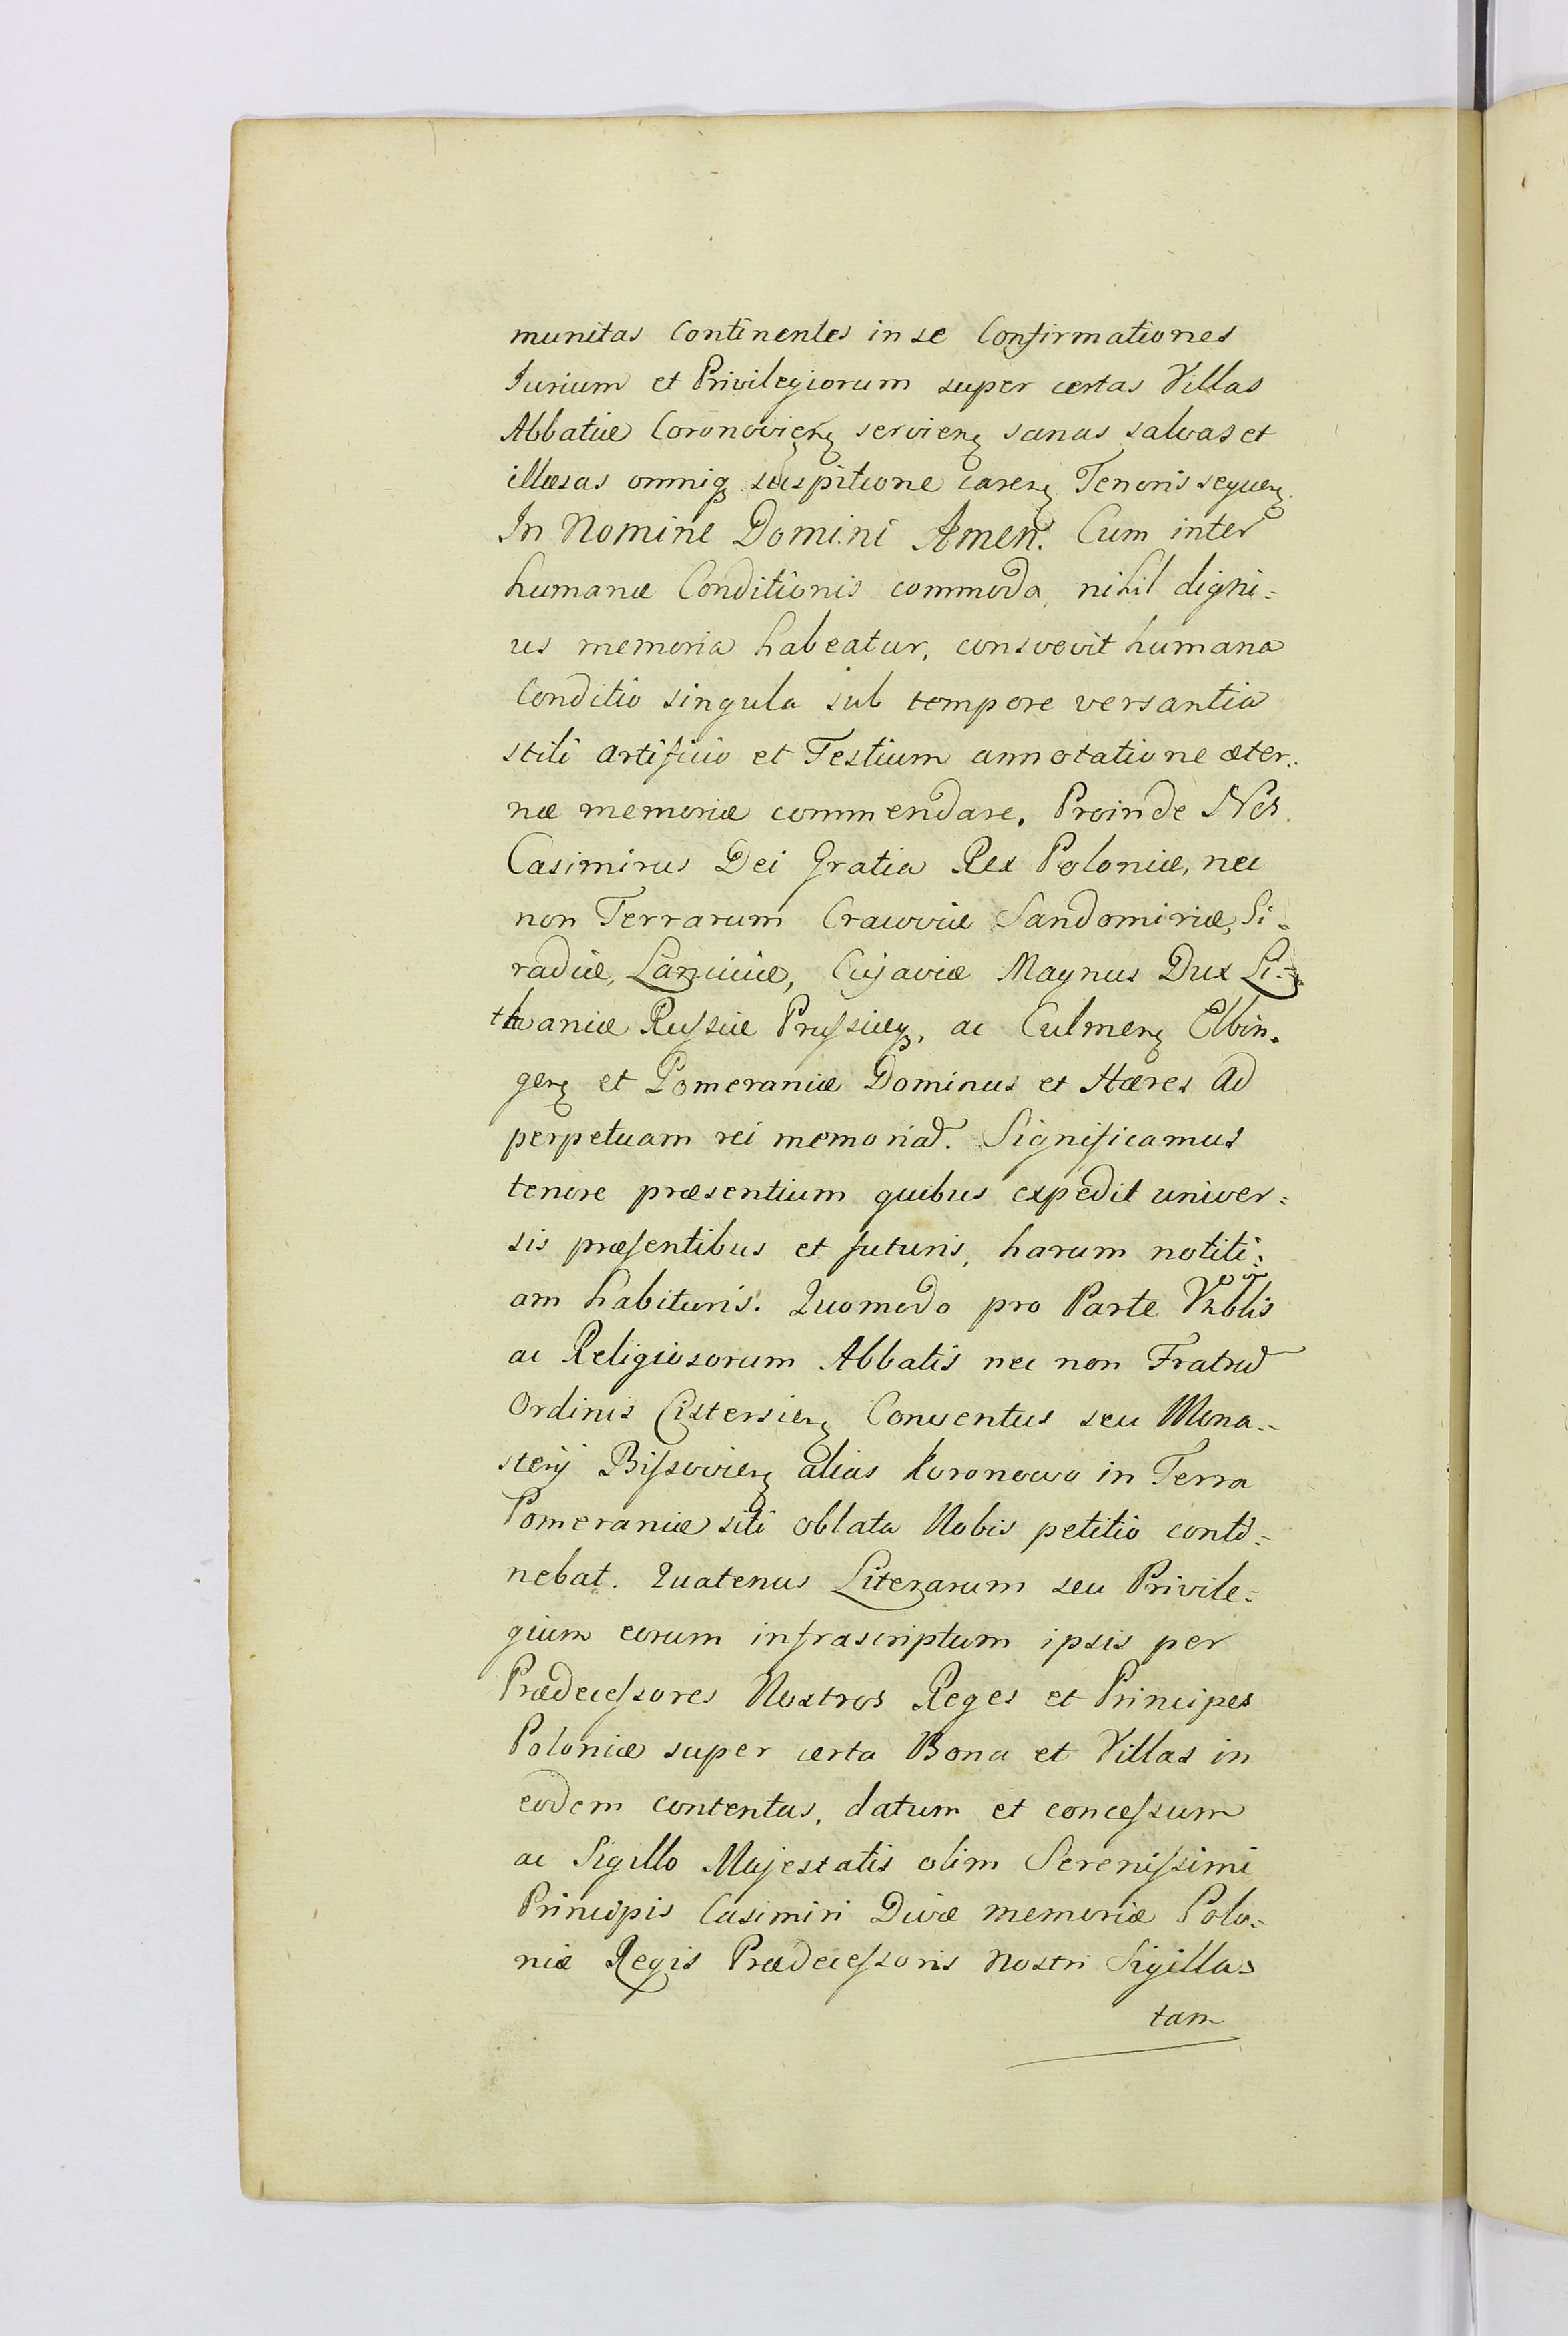 munitas Continentes in se Confirmationes
Jurium et Privilegiorum super certas Villas
Abbatiæ Coronovien servien sanas salvas et
illæsas omniq suspitione caren Tenoris sequen.
In Nomine Domini Amen. Cum inter
humanæ Conditionis commoda, nihil digni=
us memoria habeatur, consvevit humana
Conditio singula sub tempore versantia
stili artificio et Testium annotatione æter=
næ memoriæ commendare. Proinde Nos
Casimirus Dei Gratia Rex Poloniæ, nec
non Terrarum Cracoviæ Sandomiriæ, Si=
radiæ, Lanciciæ, Cujaviæ Magnus Dux Li=
thvaniæ Russiæ Prussiæq, ac Culmen Elbin=
gen et Pomeraniæ Dominus et Hæres Ad
perpetuam rei memoriã. Significamus
tenore præsentium quibus expedit univer=
sis præsentibus et futuris, harum notiti=
am habituris. Quomodo pro Parte Vnblis
ac Religiosorum Abbatis nec non Fratrũ
Ordinis Cistersien Conventus seu Mona=
sterij Bissovien alias Koronowo in Terra
Pomeraniæ siti oblata Nobis petitio conti=
nebat. Quatenus Literarum seu Privile=
gium eorum infrascriptum ipsis per
Prædecessores Nostros Reges et Principes
Poloniæ super certa Bona et Villas in
eodem contentas, datum et concessum
ac Sigillo Majestatis olim Serenissimi
Principis Casimiri Divæ memoriæ Polo=
niæ Regis Prædecessoris Nostri Sigilla=
tam